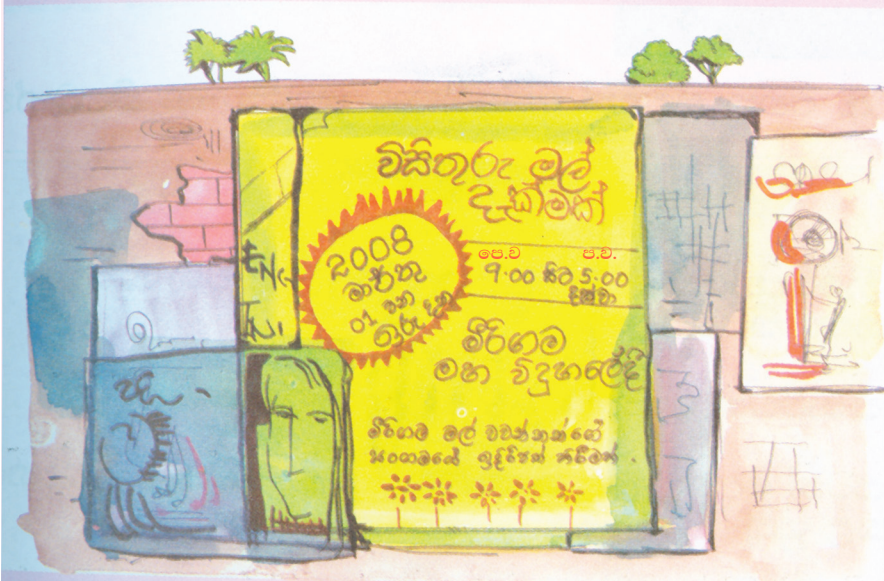 විසිතුරු මල්
දැක්මක්
2008
මාර්තු
01 වන
ඉරු දින
පෙ.ව ප.ව.
9.00 සිට 5.00
දක්වා
මීරිගම
මහ විදුහලේදී
මීරිගම මල් වවන්නන්ගේ
සංගමයේ ඉදිරිපත් කිරීමක්.